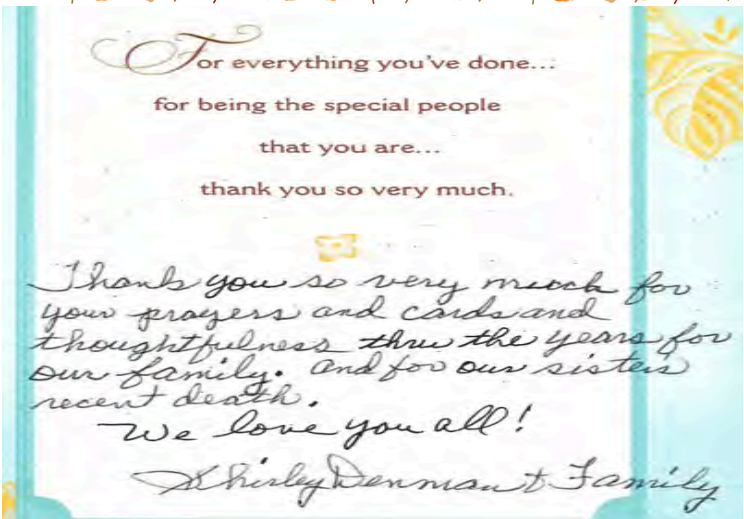 For everything you've done...
for being the special people
that you are...
thank you so very much.
Thank you so very much for
your prayers and cards and
thoughtfulness thru the years for
our family. and for our sisters
recent death.
We love you all!
Shirley Denman & Family